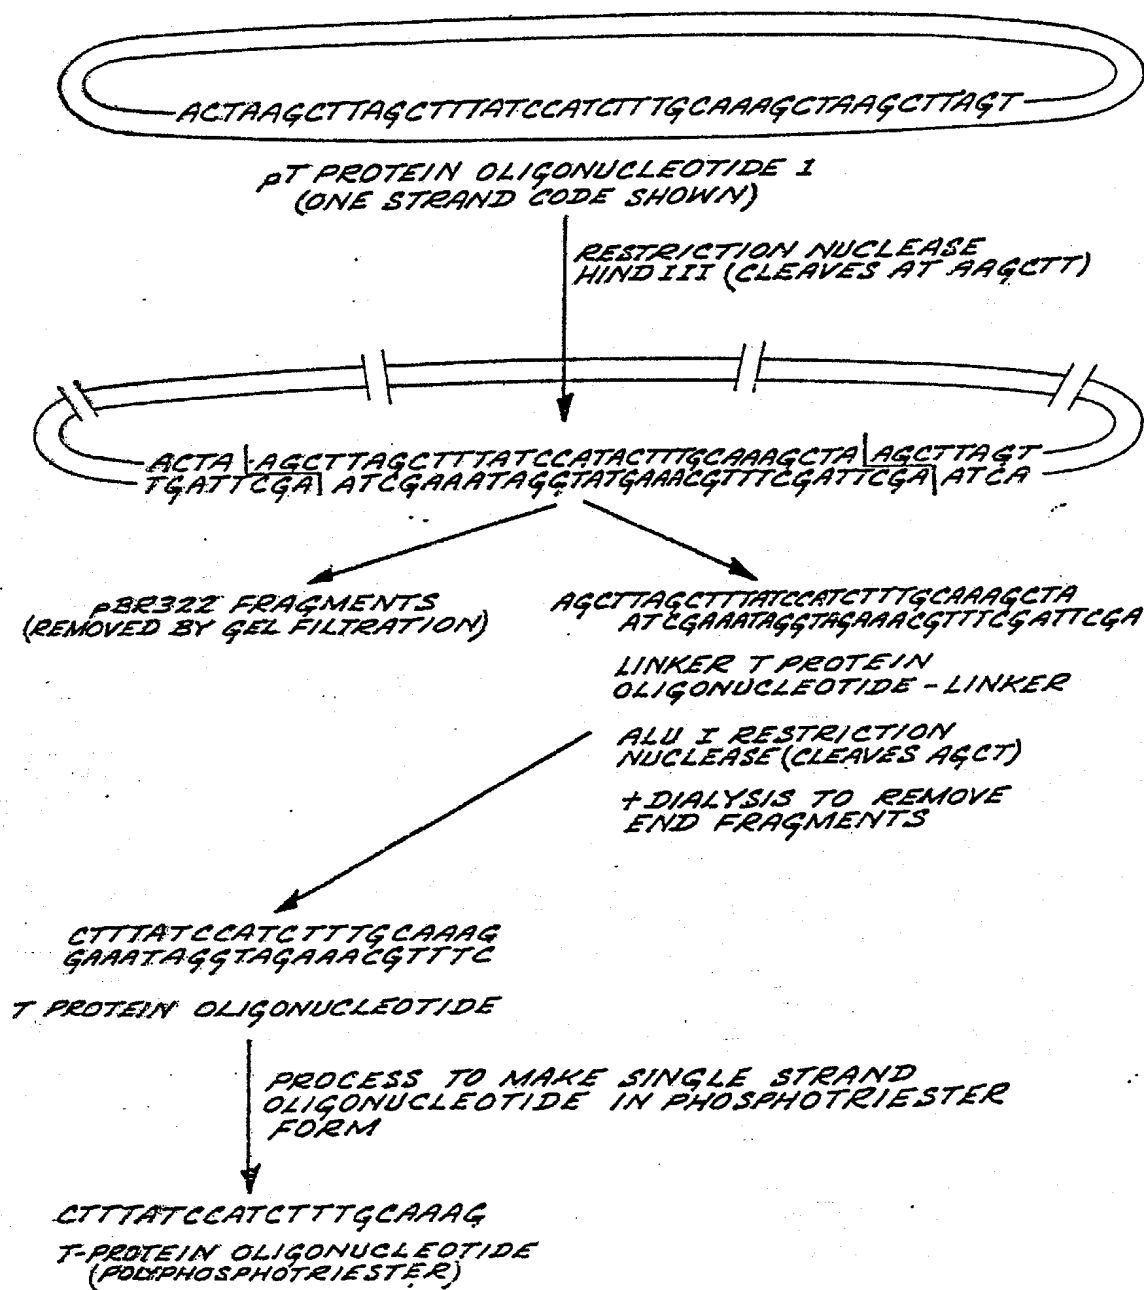 ACTAAGCTTAGCTTTATCCATCTTTGCAAAGCTAAGCTTAGT
pT PROTEIN OLIGONUCLEOTIDE 1
(ONE STRAND CODE SHOWN)
RESTRICTION NUCLEASE
HIND III (CLEAVES AT AAGCTT)
ACTA AGCTTAGCTTTATCCATACTTTGCAAAGCTA AGCTTAGT
TGATTCGA ATCGAAATAGGTATGAAACGTTTCGATTCGA ATCA
pBR322 FRAGMENTS
(REMOVED BY GEL FILTRATION)
AGCTTAGCTTTATCCATCTTTGCAAAGCTA
ATCGAAATAGGTAGAAACGTTTCGATTCGA
LINKER T PROTEIN
OLIGONUCLEOTIDE - LINKER
ALU I RESTRICTION
NUCLEASE (CLEAVES AGCT)
+ DIALYSIS TO REMOVE
END FRAGMENTS
CTTTATCCATCTTTGCAAAG
GAAATAGGTAGAAACGTTTC
T PROTEIN OLIGONUCLEOTIDE
PROCESS TO MAKE SINGLE STRAND
OLIGONUCLEOTIDE IN PHOSPHOTRIESTER
FORM
CTTTATCCATCTTTGCAAAG
T-PROTEIN OLIGONUCLEOTIDE
(POLYPHOSPHOTRIESTER)